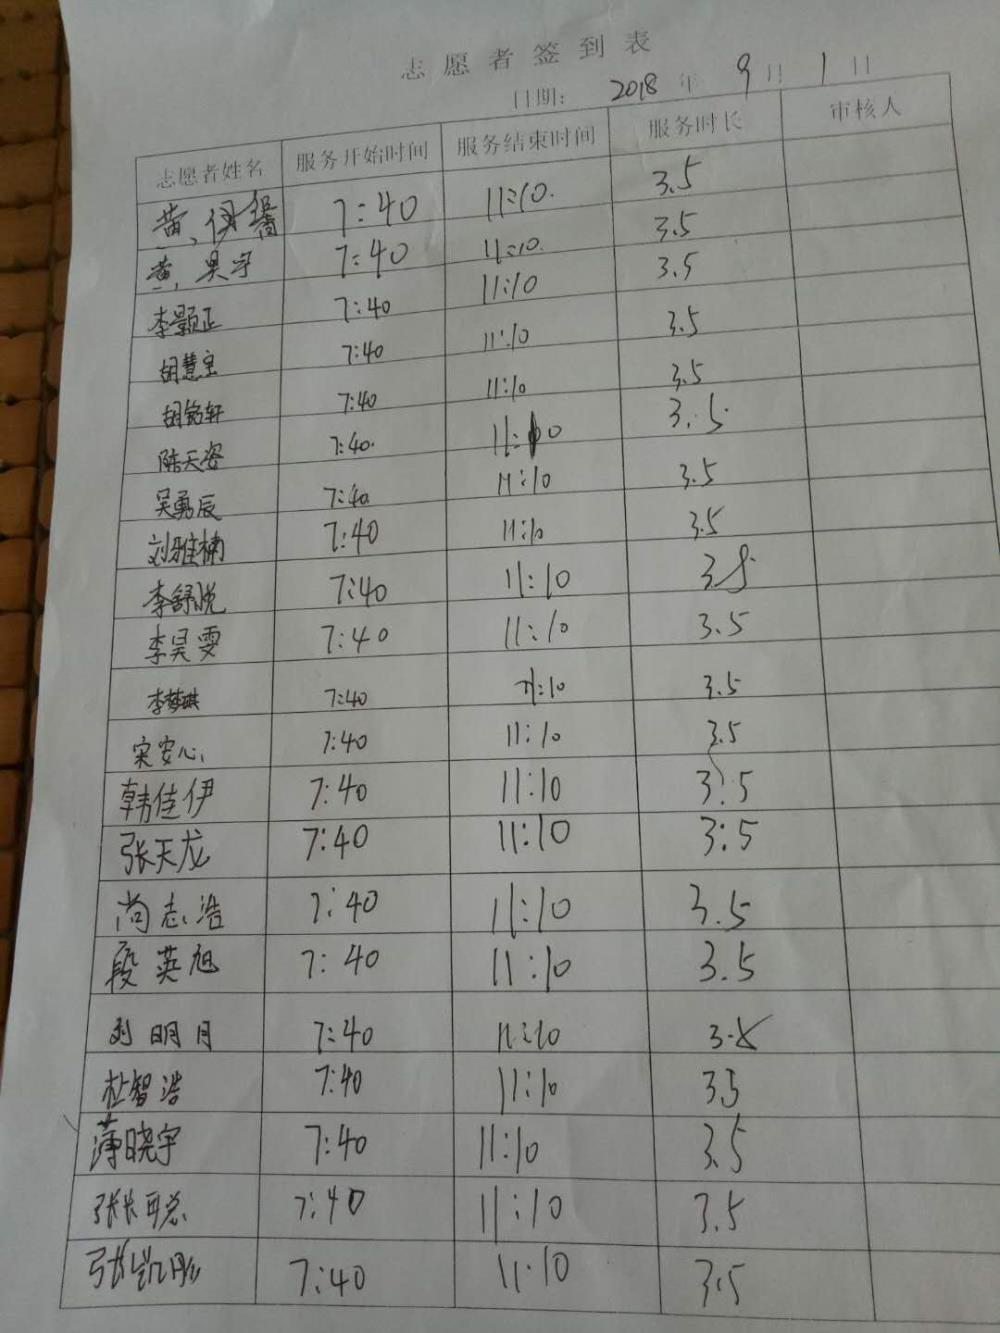 志愿者签到表
日期: 2018 年 9 月 1 日
志愿者姓名 服务开始时间 服务结束时间 服务时长 审核人
黄伊 7:40 11:10. 3.5
黄昊宇 7:40 11:10. 3.5
李颢正 7:40 11:10 3.5
胡慧宝 7:40 11:10 3.5
胡铭轩 7:40 11:10 3.5
陈天姿 7:40. 11:10 3.5
吴勇辰 7:40 11:10 3.5
刘雅楠 7:40 11:10 3.5
李舒悦 7:40 11:10 3.5
李昊雯 7:40 11:10 3.5
李梦琪 7:40 11:10 3.5
宋安心 7:40 11:10 3.5
韩佳伊 7:40 11:10 3.5
张天龙 7:40 11:10 3:5
尚志浩 7:40 11:10 3.5
段英旭 7:40 11:10 3.5
刘明月 7:40 11:10 3.5
杜智浩 7:40 11:10 3.5
薄晓宇 7:40 11:10 3.5
张长聪 7:40 11:10 3.5
张凯彤 7:40 11:10 3.5